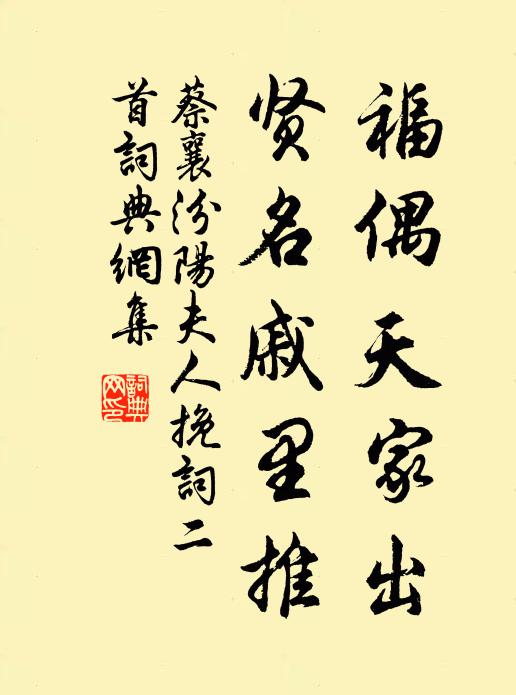 福偶天家出
贤名戚里推
蔡襄汾陽夫人挽詞二
首詞典網集
詞典
网印